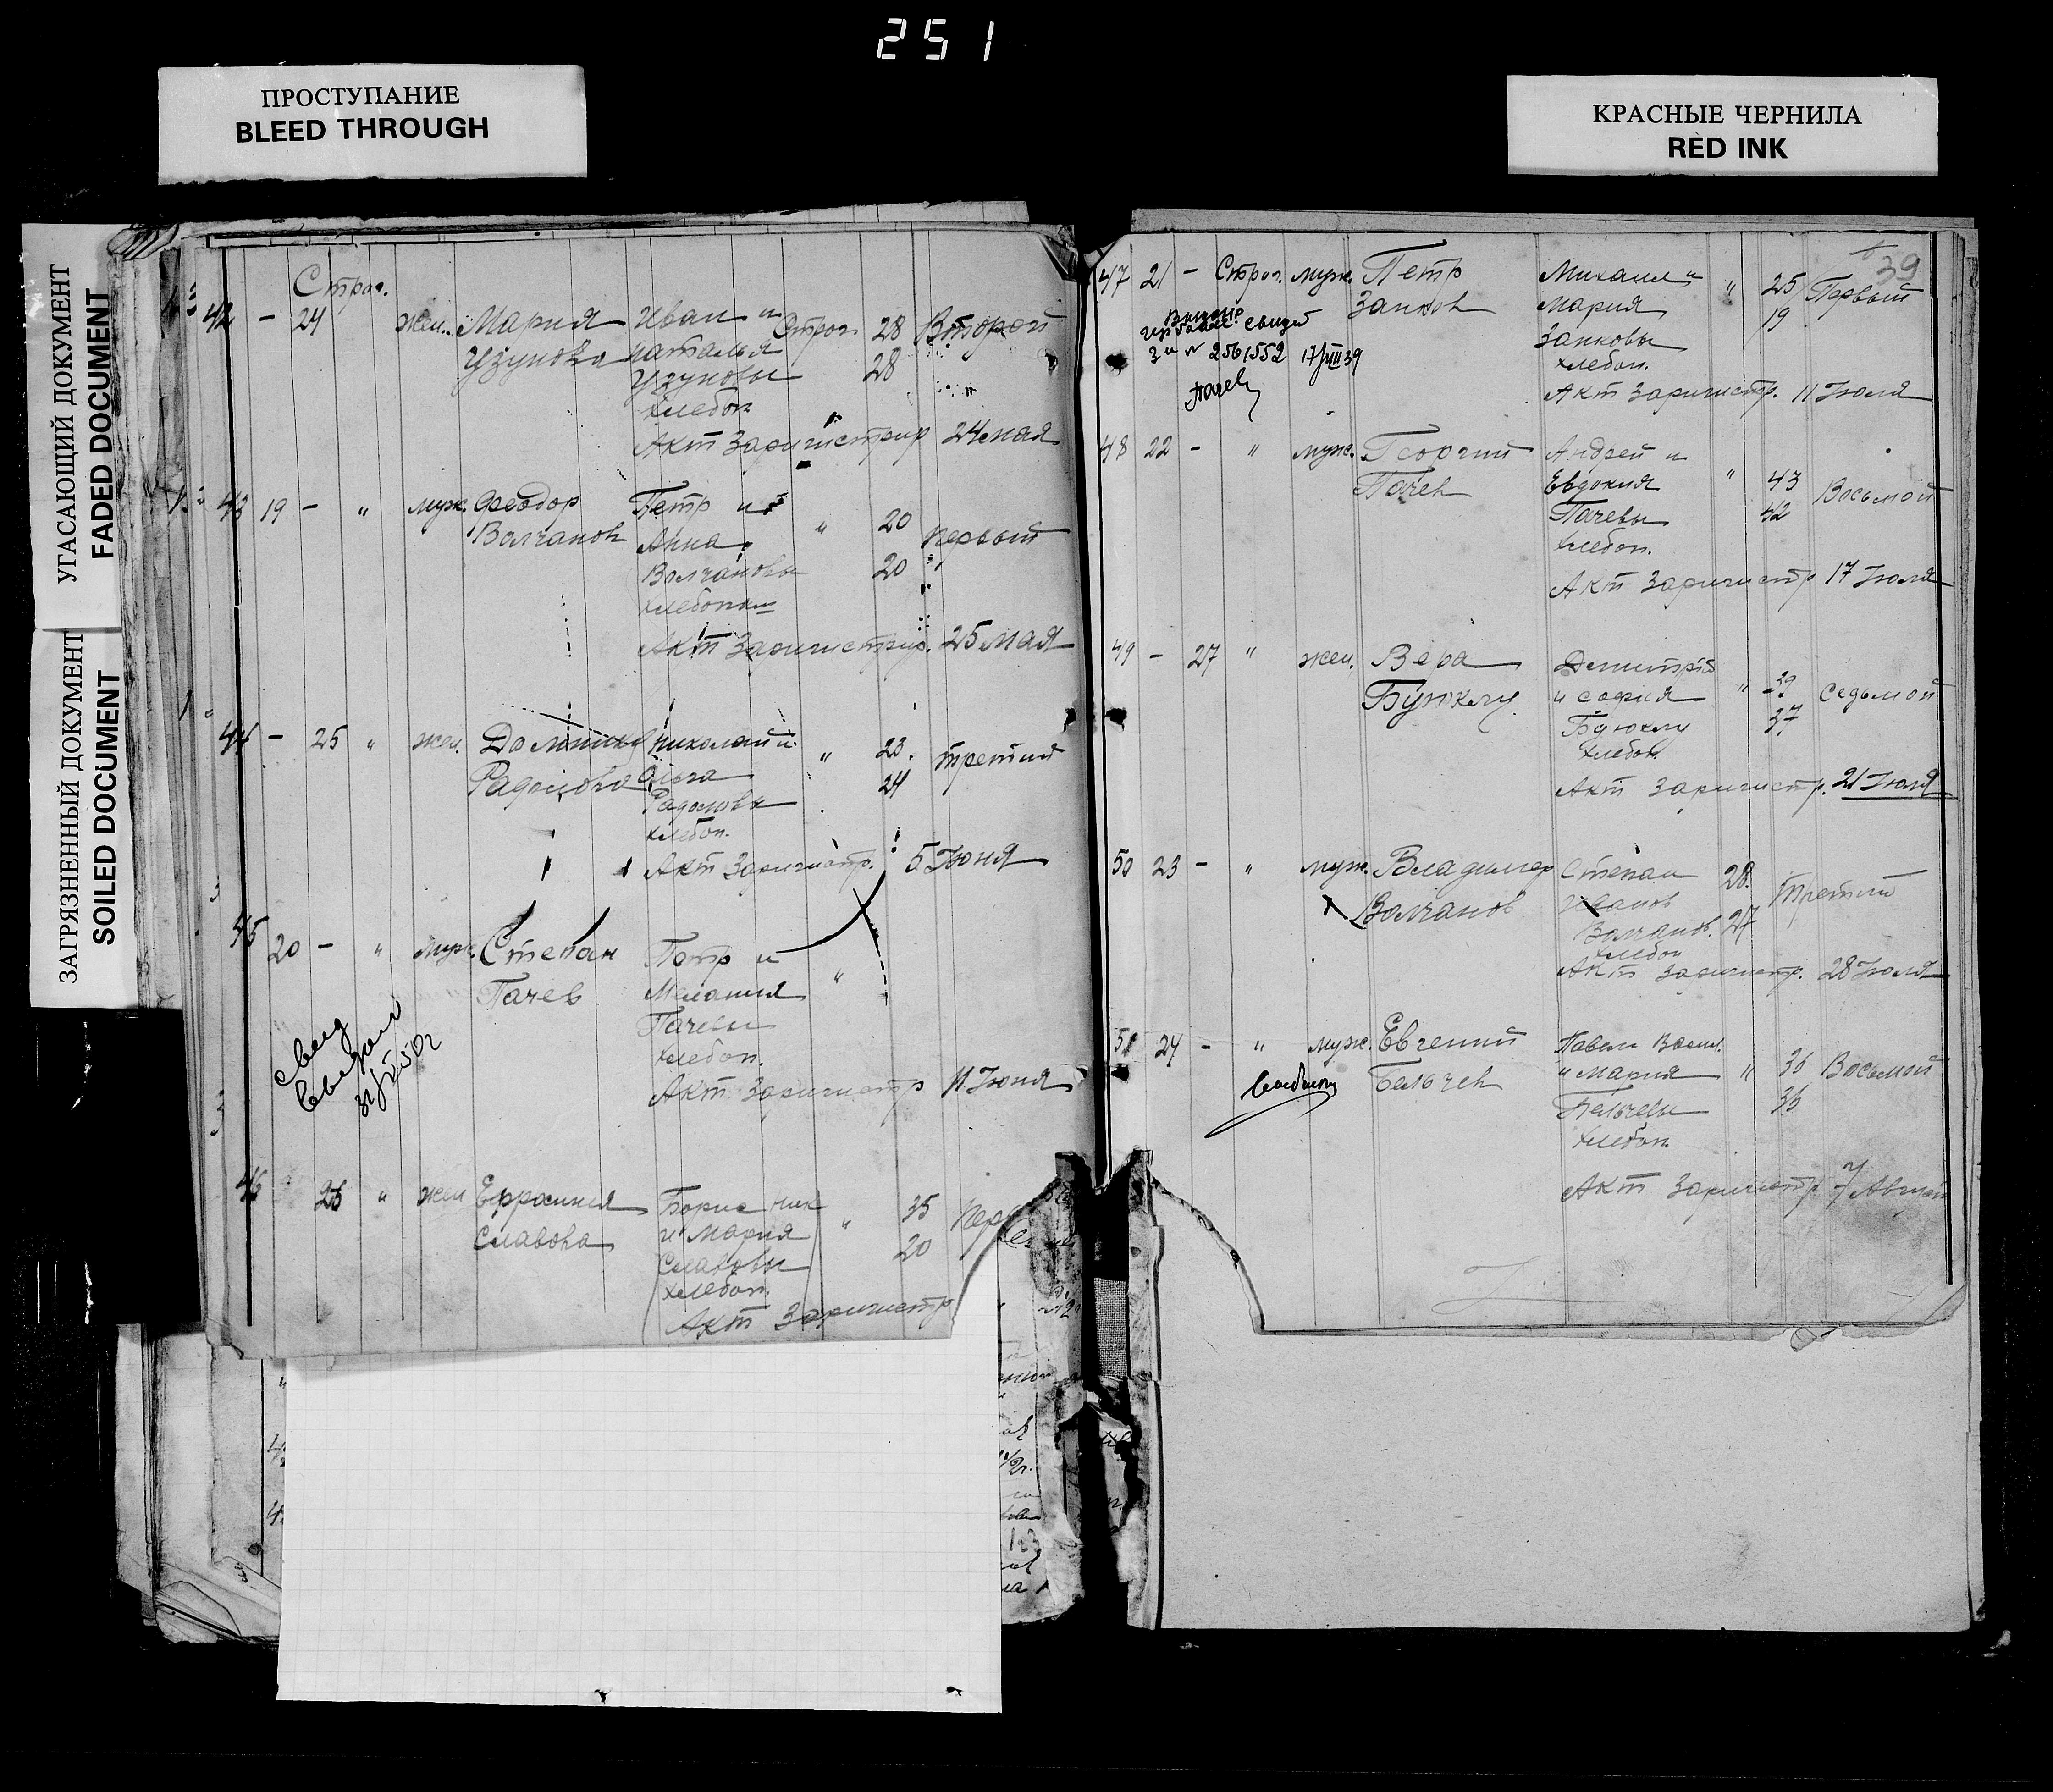 251
ПРОСТУПАНИЕ
BLEED THROUGH
КРАСНЫЕ ЧЕРНИЛА
RED INK
УГАСАЮЩИЙ ДОКУМЕНТ
FADED DOCUMENT
ЗАГРЯЗНЕННЫЙ ДОКУМЕНТ
SOILED DOCUMENT
Строг.
42 - 24 жен. Мария Иван и Строг 28 Второй
Узунова Наталья 28
Узуновы "
хлебоп
Акт Заригистрир 24 мая
43 19 - " муж. Феодор Петр и " 20 первый
Волчанов Анна 20
Волчановы
хлебопаш
Акт Заригистрир. 25 мая
44 - 25 " жен. Николай и " 23. третий
Радолова Ольга 24
Радоловы
хлебоп.
Акт Заригистр. 5 Июня
45 20 - " муж. Степан Петр и "
Пачев Мелания
Пачевы
хлебоп.
Акт Заригистр 11 Июня
свид
46 26 " жен Борис ник " 35
Славова и Мария 20
Славовы
хлебоп.
Акт Заригистр
39
47 21 - Строг. муж. Петр Михаил и " 25 Первый
Занков Мария 19
Занковы
хлебоп.
свидет
№ 2561552 17/VIII 39
Пачев
Акт Заригистр. 11 Июля
48 22 - " муж. Георгий Андрей и
Пачев Евдокия " 43 Восьмой
Пачевы 42
хлебоп.
Акт Заригистр 17 Июля
49 - 27 " жен. Вера Димитрий
Буюклу и София " 39 седьмой
Буюклу 37
хлебоп.
Акт Заригистр. 21 Июля
50 23 - " муж. Владимер Степан 28. третий
Волчанов
Волчанов. 27
хлебоп
Акт Заригистр. 28 Июля
51 24 - " муж. Евгений Павел Васил.
Бельчев и Мария " 36 Восьмой
Бельчевы 36
хлебоп.
Акт Заригистр 7 Август